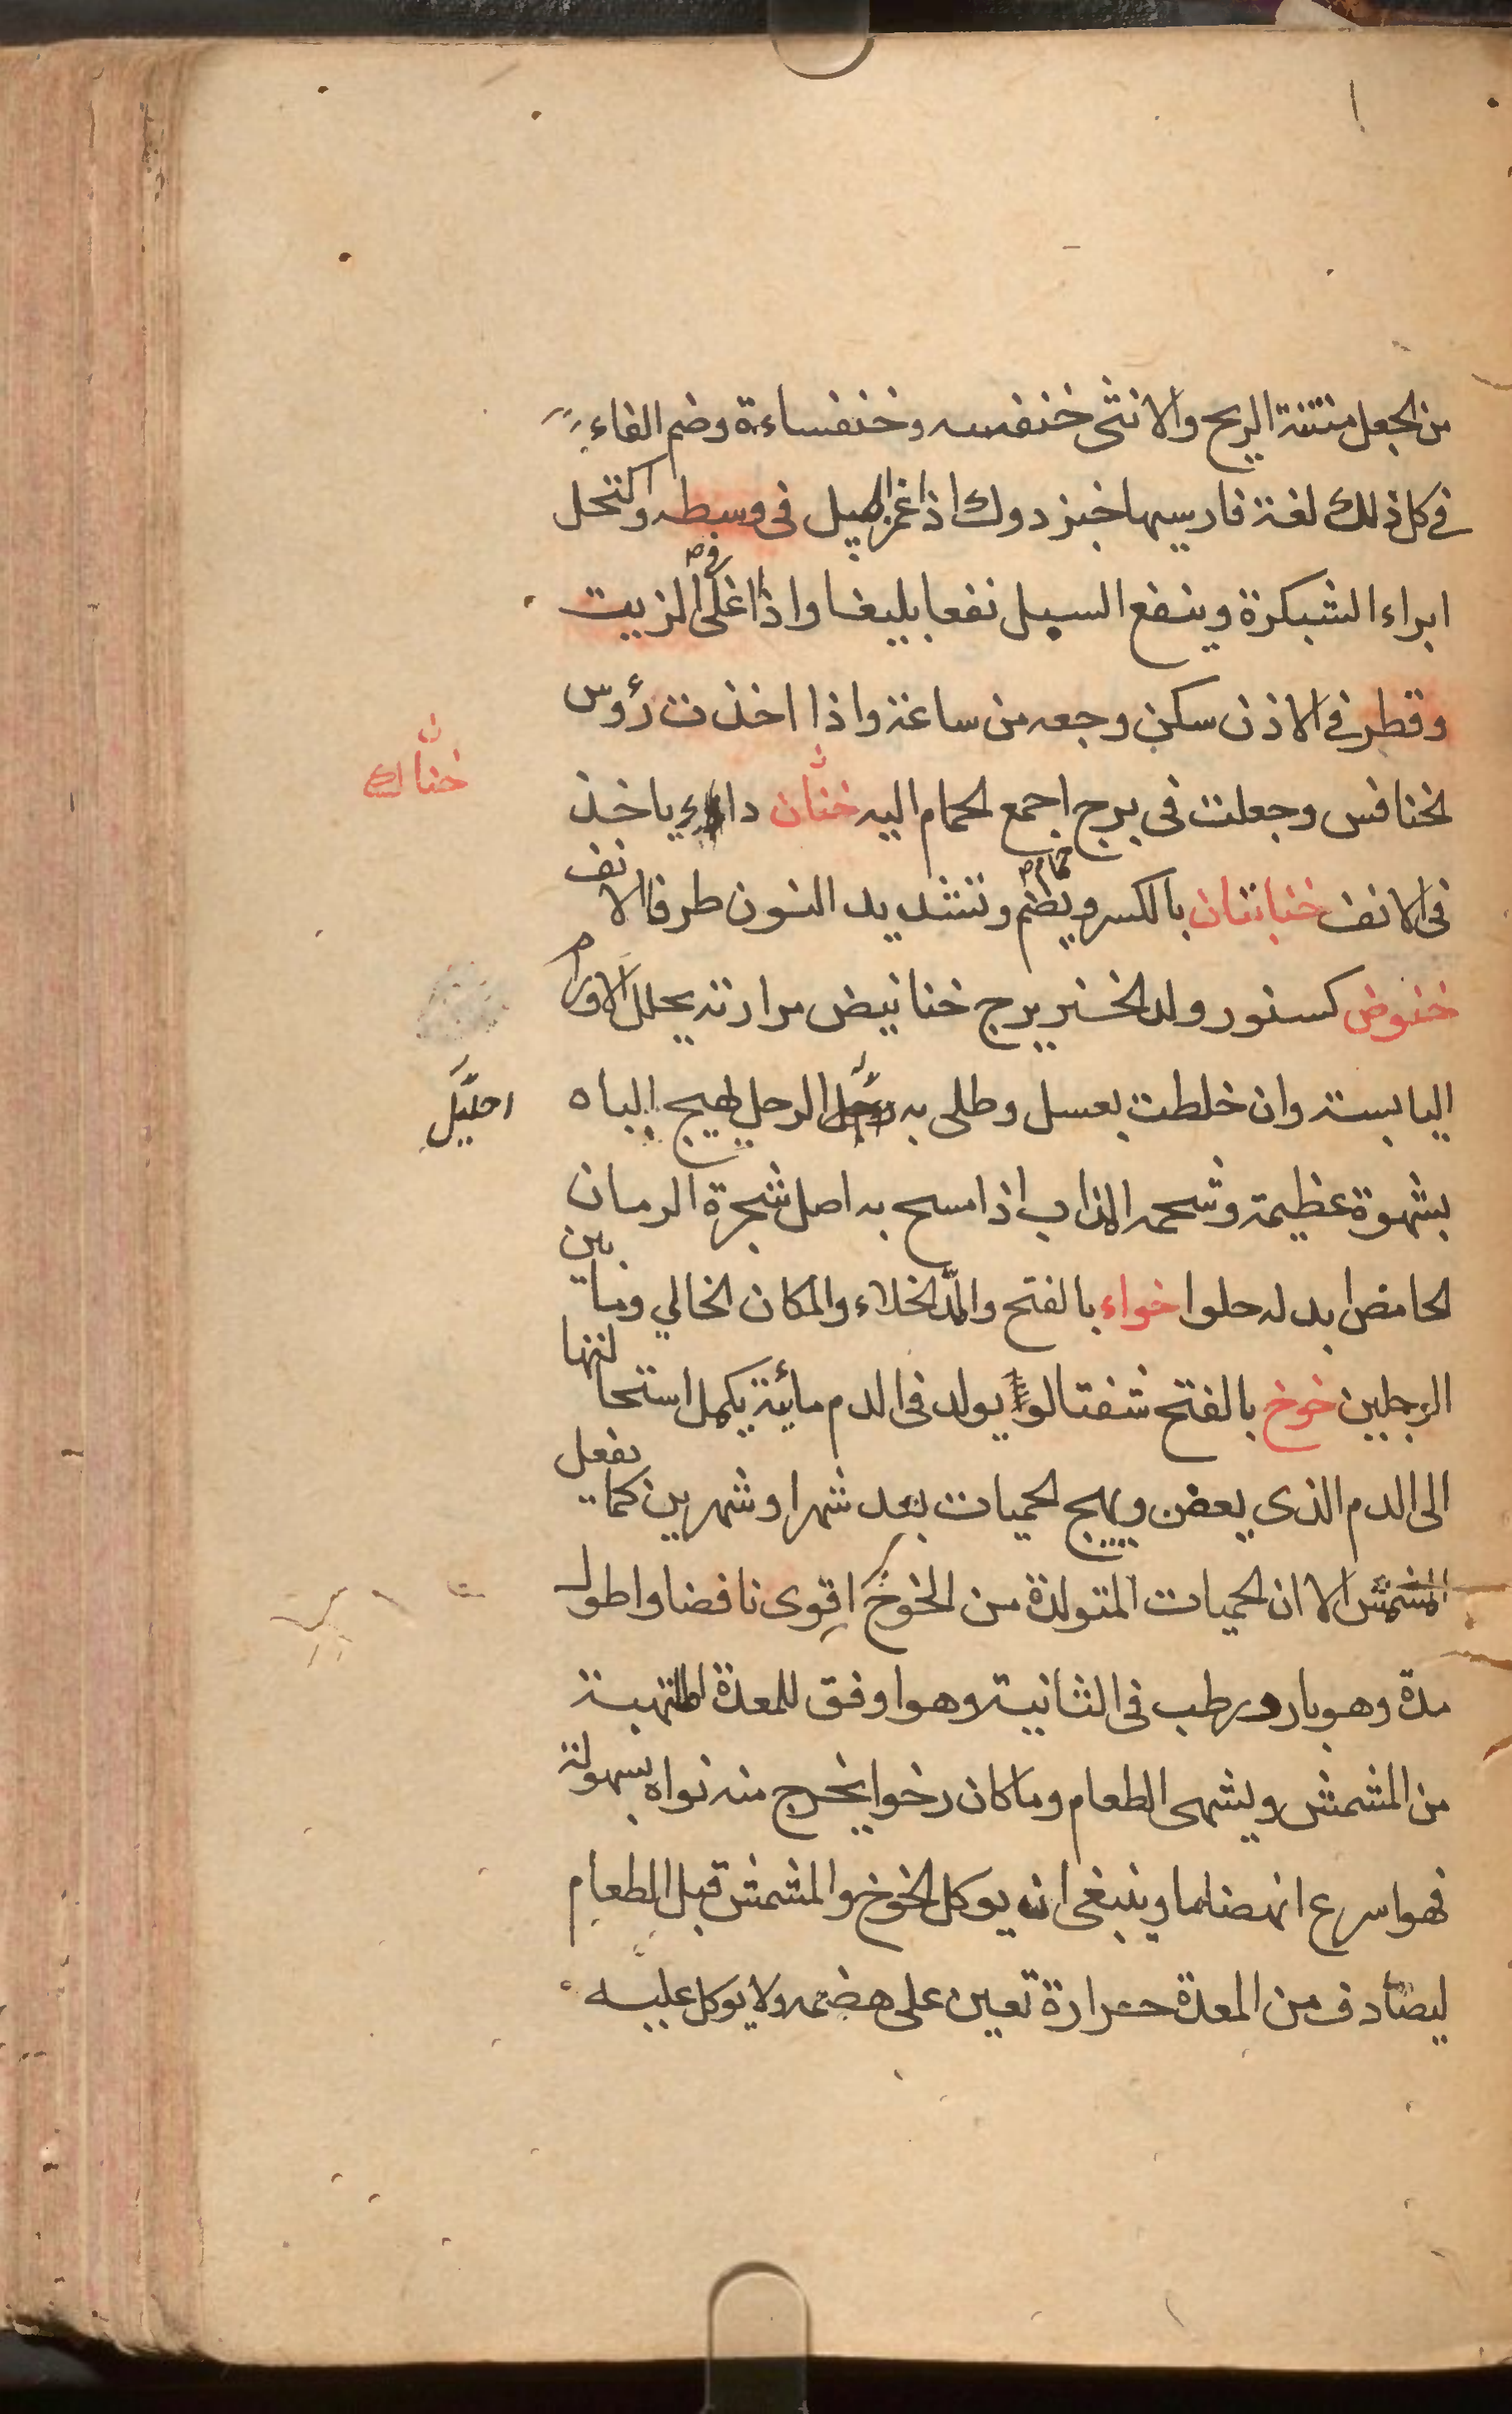 من الجعل منتنة الريح والانثى خنفسه وخنفساءة وضم الفاء
في كل ذلك لغة فارسيها خبزدوك اذا غمر الميل فى وسطه واكتحل
ابراء الشبكرة وينفع السبل نفعا بليغا واذا اغلى فى الزيت
وقطر في الاذن سكن وجعه من ساعة واذا اخذت رؤس
الخنافس وجعلت فى برج اجمع الحمام اليه خنان داء ياخذ
خنان
فى الانف خنابتان بالكسر ويضم وتشديد النون طرفا الانف
خنوض كسنور ولد الخنزير ج خنانيض مرارته يحلل الاورام
اليابسة وان خلطت بعسل وطلى به الرجل لهيج الباه
احليل
بشهوة عظيمة وشحمه المذاب اذا مسح به اصل شجرة الرمان
الحامض ابدله حلوا خواء بالفتح والمد الخلاء والمكان الخالي وما بين
الرجلين خوخ بالفتح شفتالو يولد فى الدم مائية يكمل استحالتها
الى الدم الذى يعفن ويهيج الحميات بعد شهر او شهرين كما يفعل
المشمش الا ان الحميات المتولدة من الخوخ اقوى نافضا واطول
مدة وهو بارد رطب فى الثانية وهو اوفق للمعدة الملتهبة
من المشمش ويشهى الطعام وما كان رخوا يخرج منه نواه بسهولة
فهو اسرع انهضاما وينبغى ان يوكل الخوخ والمشمش قبل الطعام
ليصادف من المعدة حرارة تعين على هضمه ولا يوكل عليه